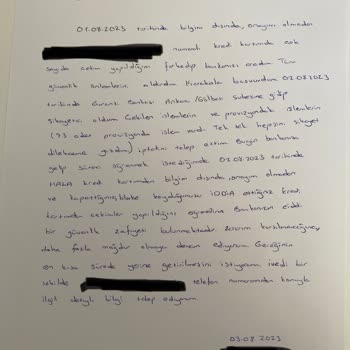 01.08.2023 tarihinde bilgim dışında, onayım olmadan
numaralı kredi kartımdan çok
sayıda çekim yapıldığını farkedip bankanızı aradım Tüm
güvenlik önlemlerini aldırdım Müteakiben başvurdum 02.08.2023
tarihinde Garanti Bankası Ankara/Gölbaşı şubesine gidip
şikayetçi oldum Çekilen işlemlerin ve provizyondaki işlemlerin
(73 adet provizyonda işlem vardı. Tek tek hepsini şikayet
dilekçeme yazdım) iptalini talep ettim Bugün bankanıza
gelip süreci öğrenmek istediğimde 02.08.2023 tarihinde
HALA kredi kartımdan bilgim dışında, onayım olmeden
ve kapattığınızı, bloke koyduğunuzu iddia ettiğiniz kredi
kartımdan çekimler yapıldığını öğrendim Bankanızın ciddi
bir güvenlik zafiyeti bulunmaktadır. Zararım karşılanmadığı
daha fazla mağdur olmaya devam ediyorum Gereğinin
en kısa sürede yerine getirilmesini istiyorum, ivedi bir
şekilde telefon numaramdan konuyla
ilgili detaylı bilgi talep ediyorum
03.08.2023